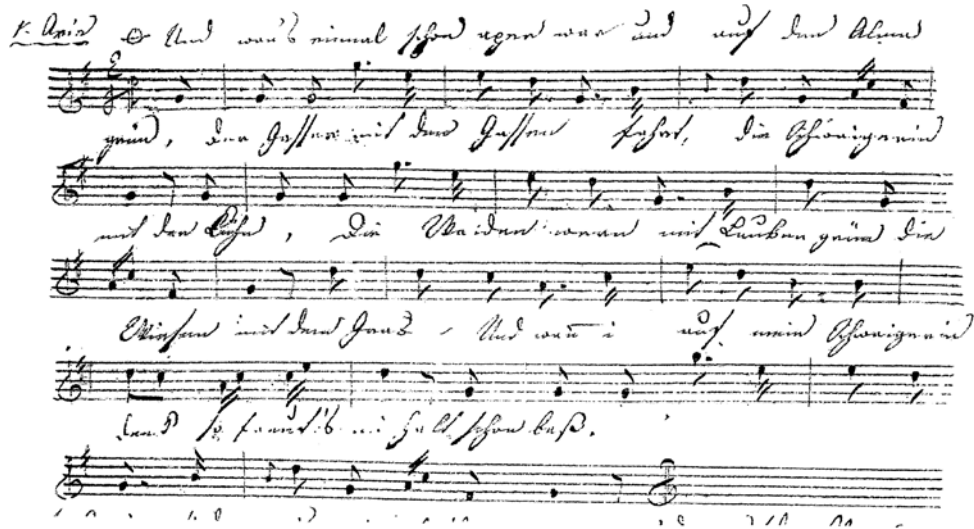 1. Aria Und wan's einmal schon aper war und auf den Almen
grün, der Gasser mit den Gassen fahrt, die Schwaigerin
mit den Kühn, Die Waiden wern mit Lauber grün die
Wiesen mit dem Gras, Und wan i auf mein Schwaigerin
denk so freut's mi halt schon baß.